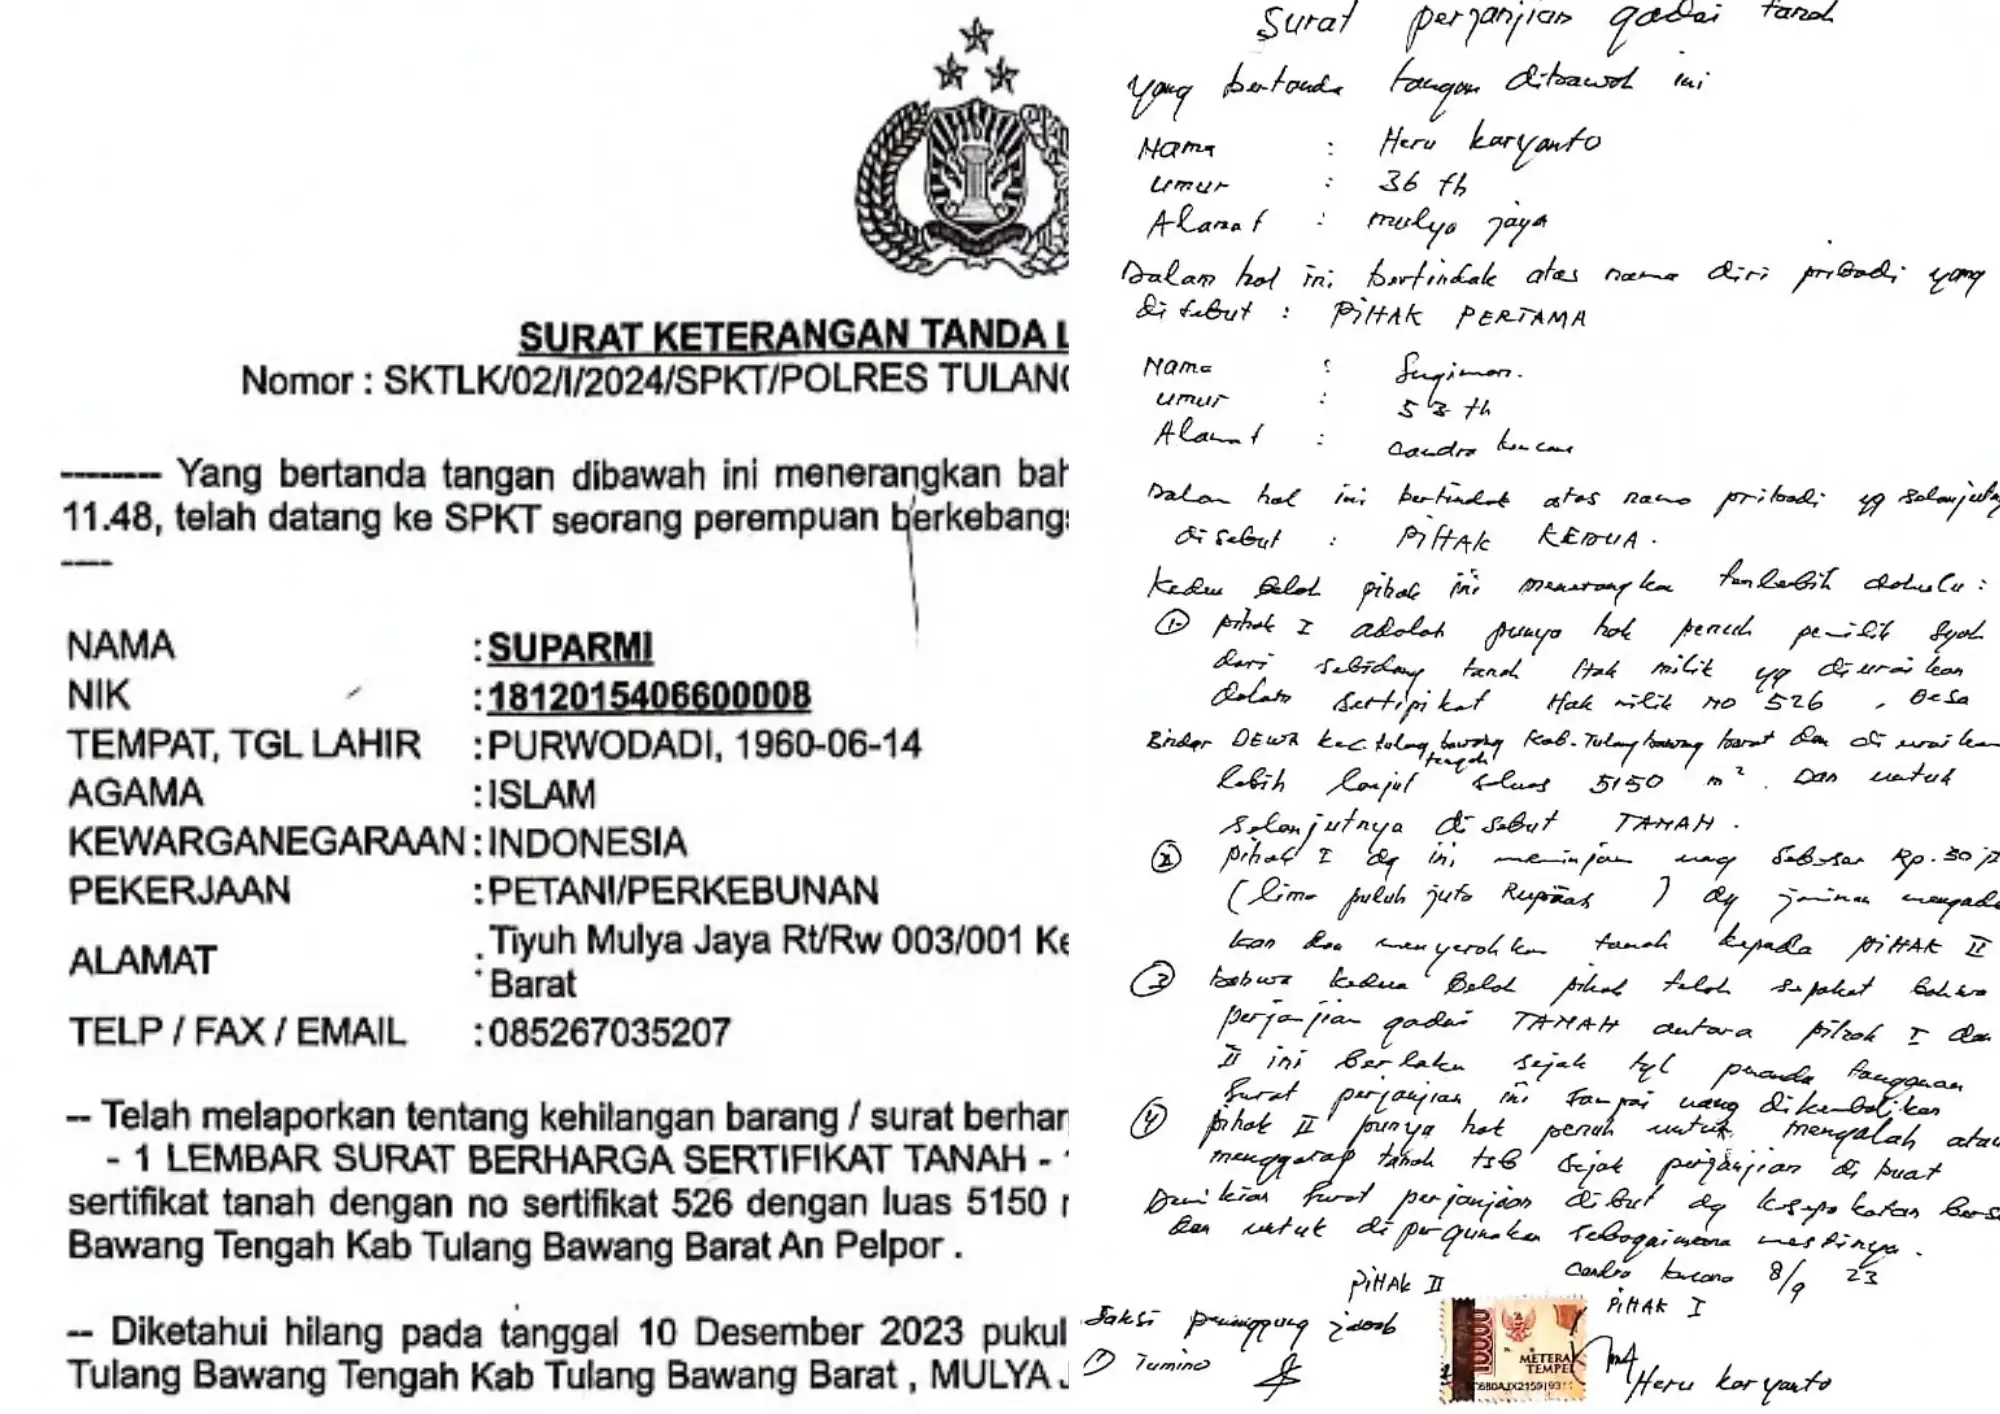 SURAT KETERANGAN TANDA L
Nomor : SKTLK/02/I/2024/SPKT/POLRES TULANG
-------- Yang bertanda tangan dibawah ini menerangkan bah
11.48, telah datang ke SPKT seorang perempuan berkebangs
----
NAMA : SUPARMI
NIK : 1812015406600008
TEMPAT, TGL LAHIR : PURWODADI, 1960-06-14
AGAMA : ISLAM
KEWARGANEGARAAN : INDONESIA
PEKERJAAN : PETANI/PERKEBUNAN
ALAMAT : Tiyuh Mulya Jaya Rt/Rw 003/001 Ke
Barat
TELP / FAX / EMAIL : 085267035207
-- Telah melaporkan tentang kehilangan barang / surat berhar
- 1 LEMBAR SURAT BERHARGA SERTIFIKAT TANAH -
sertifikat tanah dengan no sertifikat 526 dengan luas 5150
Bawang Tengah Kab Tulang Bawang Barat An Pelpor .
-- Diketahui hilang pada tanggal 10 Desember 2023 pukul
Tulang Bawang Tengah Kab Tulang Bawang Barat , MULYA J
Surat perjanjian gadai tanah
Yang bertanda tangan dibawah ini
Nama : Heru karyanto
umur : 36 th
Alamat : mulyo jaya
Dalam hal ini bertindak atas nama diri pribadi yang
di sebut : PIHAK PERTAMA
Nama : Sugiman.
umur : 53 th
Alamat : candra kencana
Dalam hal ini bertindak atas nama pribadi yg selanjutny
di sebut : PIHAK KEDUA .
Kedua belah pihak ini menerangkan terlebih dahulu :
1. pihak I adalah punya hak penuh pemilik syah
dari sebidang tanah Hak milik yg di uraikan
dalam sertipikat Hak milik no 526 , Desa
Bindar DEWA kec. tulang bawang tengah Kab. Tulang bawang barat dan di uraikan
lebih lanjut seluas 5150 m². Dan untuk
selanjutnya di sebut TANAH .
2 pihak I dg ini meminjam uang sebesar Rp. 50 j
( lima puluh juta Rupiah ) dg jaminan mengada
kan dan menyerahkan tanah kepada PIHAK II
3 bahwa kedua belah pihak telah sepakat bahwa
perjanjian gadai TANAH antara pihak I dan
II ini berlaku sejak tgl penanda tangganan
surat perjanjian ini sampai uang dikembalikan
4 pihak II punya hak penuh untuk mengalah atau
menggarap tanah tsb sejak perjanjian di buat
Demikian surat perjanjian dibut dg kesepakatan bers
dan untuk di pergunakan sebagaimana mestinya .
candra kencana 8/9 23
PIHAK II PIHAK I
Saksi penanggung jawab
1 Tumino
10000
METERAI
TEMPEL
Heru karyanto